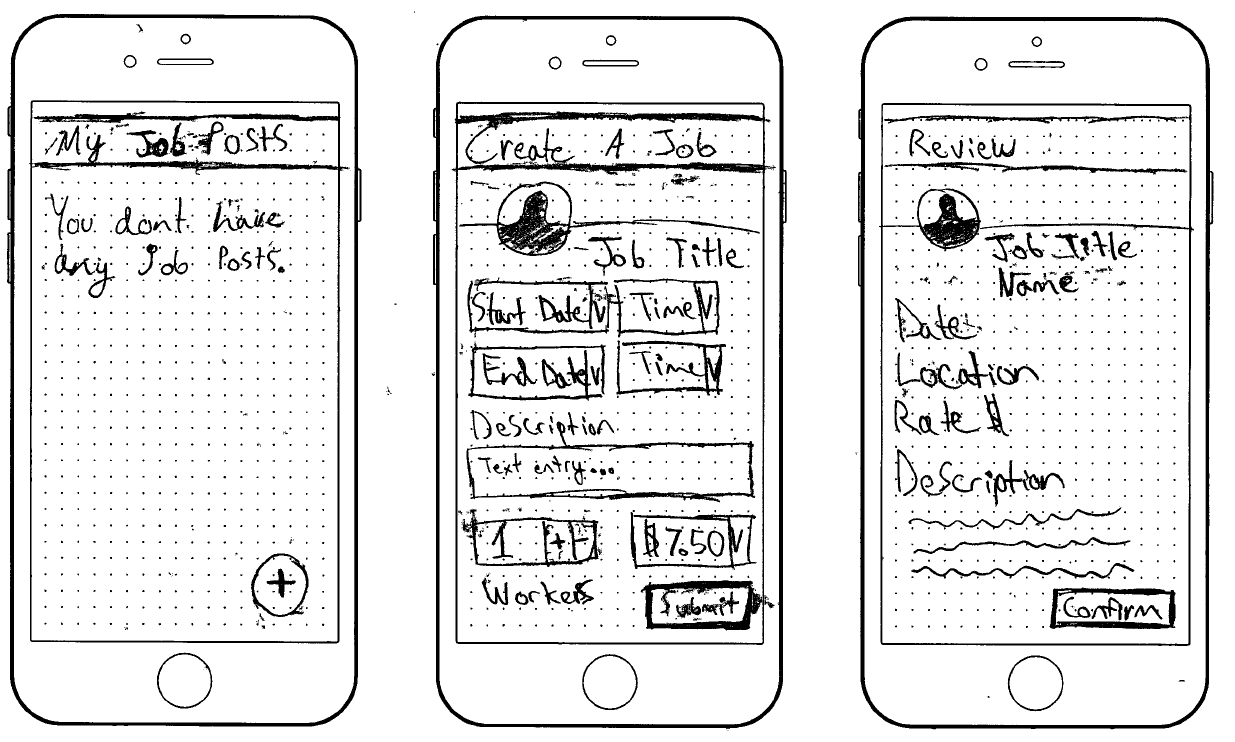 My Job Posts
You dont have
any Job Posts.
+
Create A Job
Job Title
Start Date V Time V
End Date V Time V
Description
Text entry...
1 + - $7.50 V
Workers
Submit
Review
Job Title
Name
Date
Location
Rate $
Description
Confirm